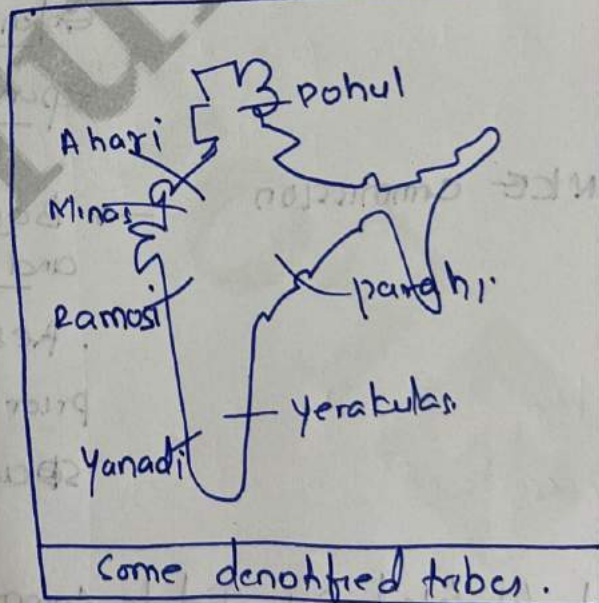 Dohul
Ahari
Minas
Ramosi
parghi.
Yerakulas.
Yanadi
Some denotified tribes.